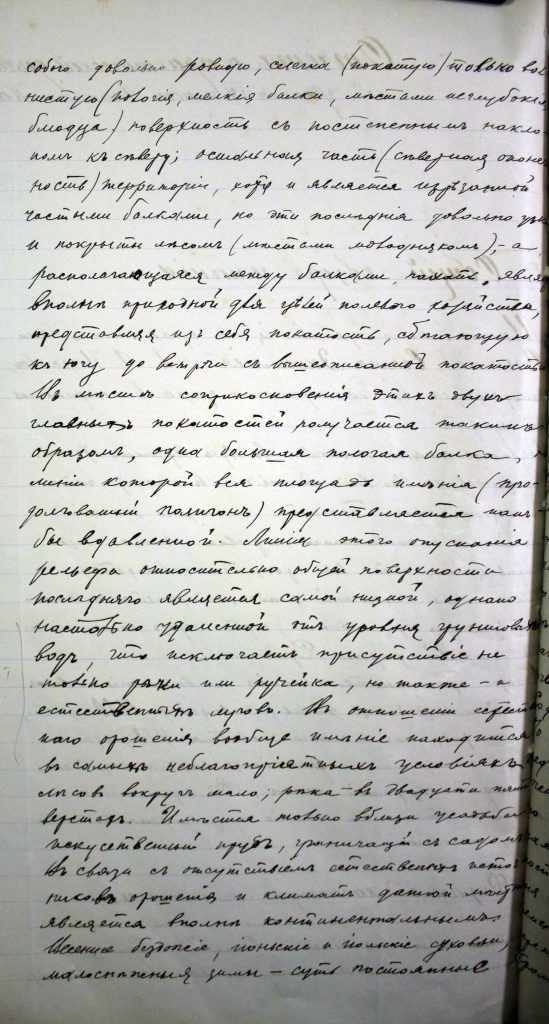 собою довольно ровную, слегка (покатую) только вол
нистую (пологія, мелкія балки, мѣстами неглубокія
блюдца) поверхность съ постепеннымъ накло
номъ къ сѣверу; остальная часть (сѣверная
ность) территоріи, хотя и является изрѣзанной
частыми балками, но эти послѣднія довольно
и покрыты лѣсомъ (мѣстами молоднякомъ), – а
располагающаяся между балками, пахать, явля
вполнѣ пригодной для цѣлей полевого хозяйства,
представляя изъ себя покатость, сбѣгающую
къ югу до встрѣчи съ вышеописанной покатостью
Въ мѣстѣ соприкосновенія этихъ двухъ
главныхъ покатостей получается такимъ
образомъ, одна большая пологая балка,
линіи которой вся площадь имѣнія (про-
долговатый полигонъ) представляется какъ
бы вдавленной. Линія этого опусканія
рельефа относительно общей поверхности
послѣдняго является самой низкой, однако
настолько удаленной отъ уровня грунтовыхъ
водъ, что исключаетъ присутствіе не
только рѣчки или ручейка, но также – и
естественныхъ Въ отношеніи естествен
наго орошенія вообще имѣніе находится
въ самыхъ неблагопріятныхъ условіяхъ
лѣсовъ вокругъ мало; рѣка – въ двадцати пяти
верстахъ. Имѣется только вблизи усадьбы
искуственный прудъ, граничащій съ садомъ
Въ связи съ отсутствіемъ естественныхъ источ
никовъ орошенія и климатъ данной мѣстн
является вполнѣ континентальнымъ
Весенніе бездождіе, іюньскіе и іюльскіе суховѣи,
малоснѣжныя зимы – суть постоянные